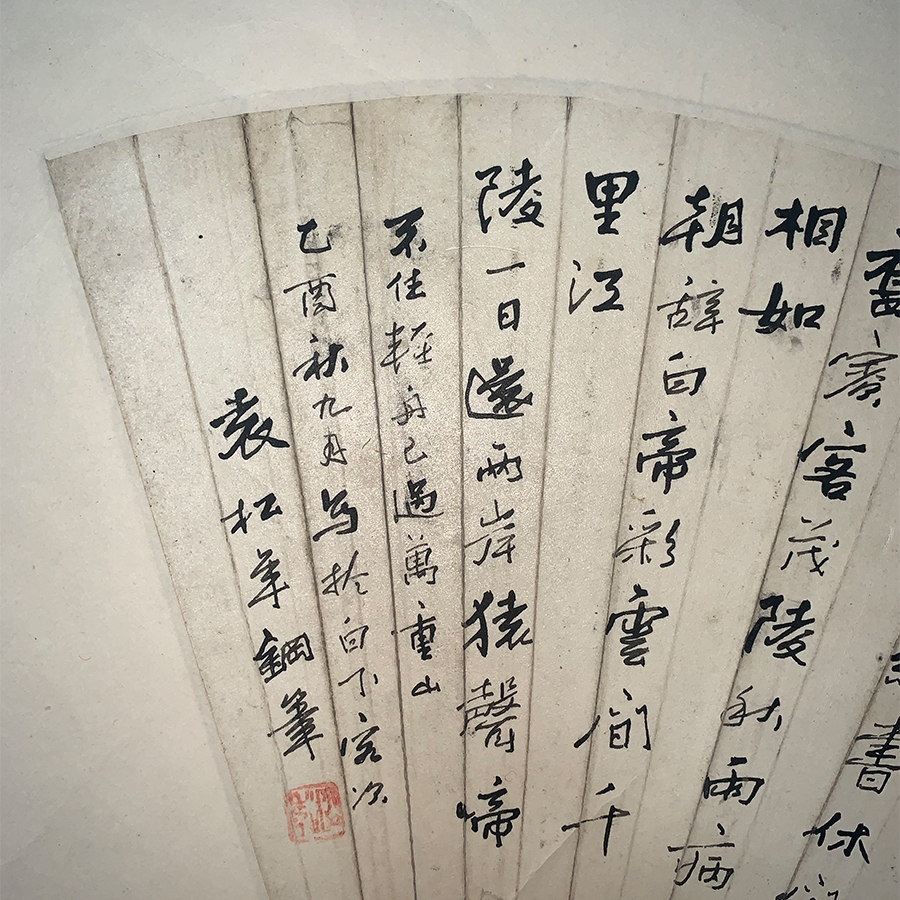 書休
舊賓客茂陵秋雨病
相如
朝辭白帝彩雲間千
里江
陵一日還兩岸猿聲啼
不住輕舟已過萬重山
乙酉秋九月寫於白下客次
袁松年鋼筆